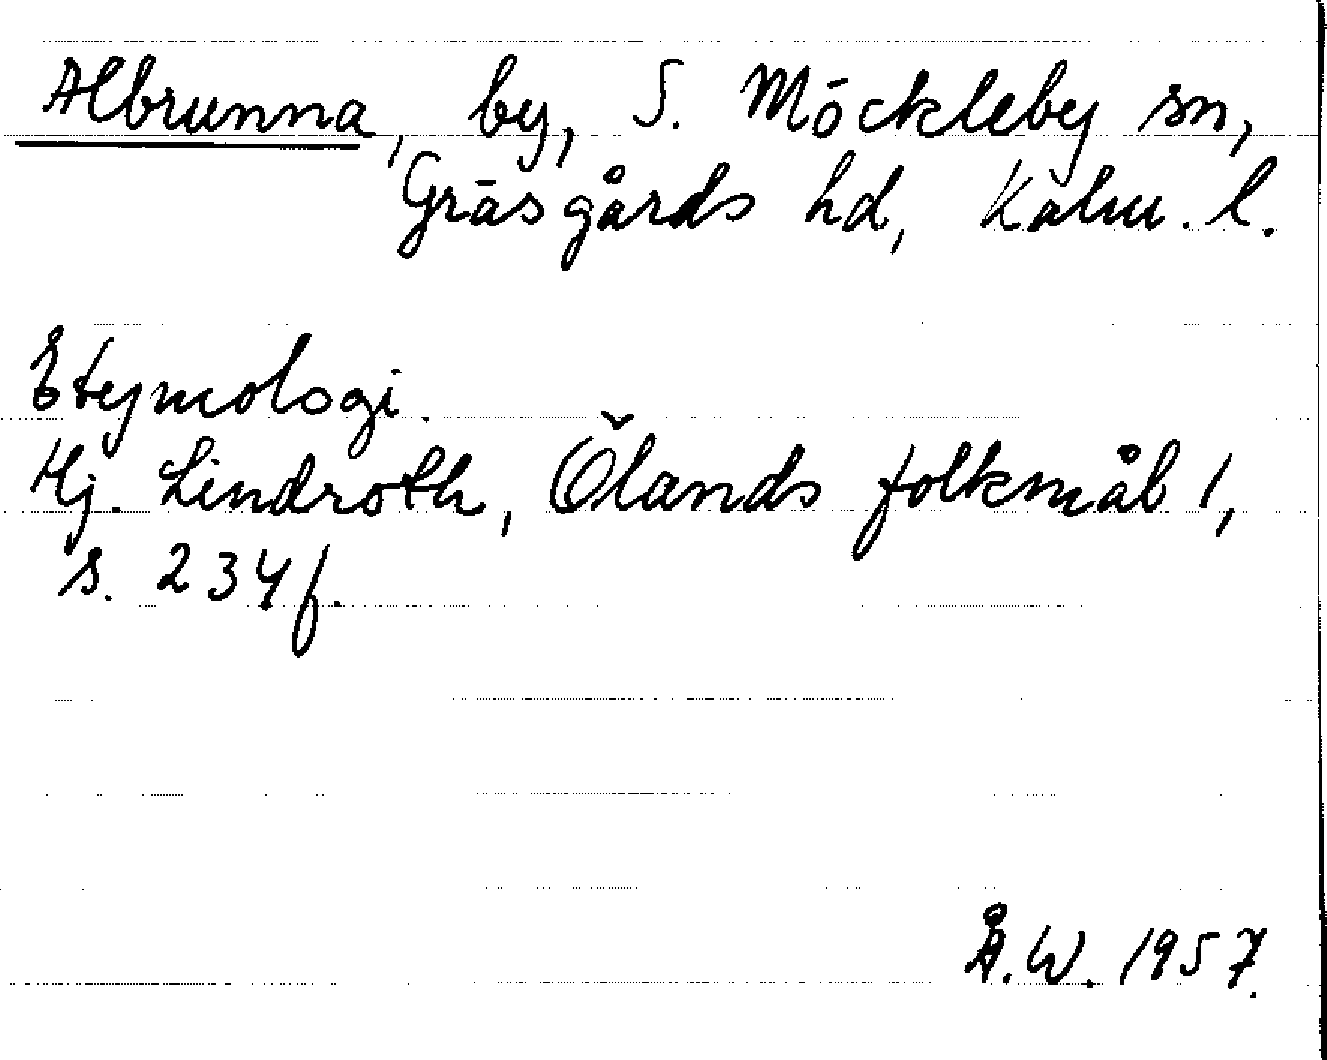 Albrunna, by, S. Möckleby sn,
Gräsgårds hd, Kalm. l.
Etymologi.
Hj. Lindroth, Ölands folkmål 1,
s. 234 f.
Å.W. 1957.